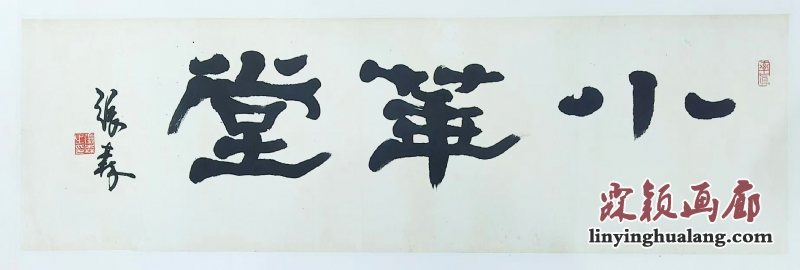 小華堂
張森
霖颖画廊
linyinghualang.com